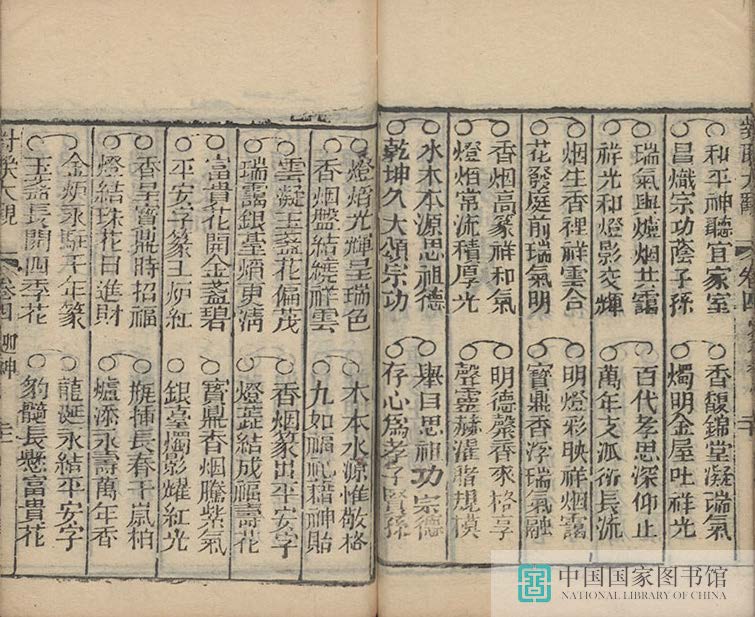 對聯大觀 卷四
和平神聽宜家室 香馥錦堂凝瑞氣
昌熾宗功蔭子孫 燭明金屋吐祥光
瑞氣與爐烟共靄 百代孝思深仰止
祥光和燈影交輝 萬年支派衍長流
烟生香裡祥雲合 明燈彩映祥烟靄
花發庭前瑞氣明 寶鼎香浮瑞氣融
香烟高篆祥和氣 明德馨香來格享
燈焰常流積厚光 聲靈赫濯規模
水木本源思祖德 舉目思功宗德
乾坤久大頌宗功 存心爲孝子賢孫
燈焰光輝呈瑞色 木本水源惟敬格
香烟盤結繞祥雲 九如福祉藉神貽
雲凝玉盞花偏茂 香烟篆出平安字
瑞靄銀臺焰更清 燈蕋結成福壽花
富貴花開金盞碧 寶鼎香烟騰紫氣
平安字篆玉炉紅 銀臺燭影耀紅光
香呈寶鼎時招福 瓶插長春千歲柏
燈結珠花日進財 爐添永壽萬年香
金炉永駐千年篆 龍涎永結平安字
玉盞長開四季花 豹髓長懸富貴花
對聯大觀 卷四 神
中国国家图书馆
NATIONAL LIBRARY OF CHINA